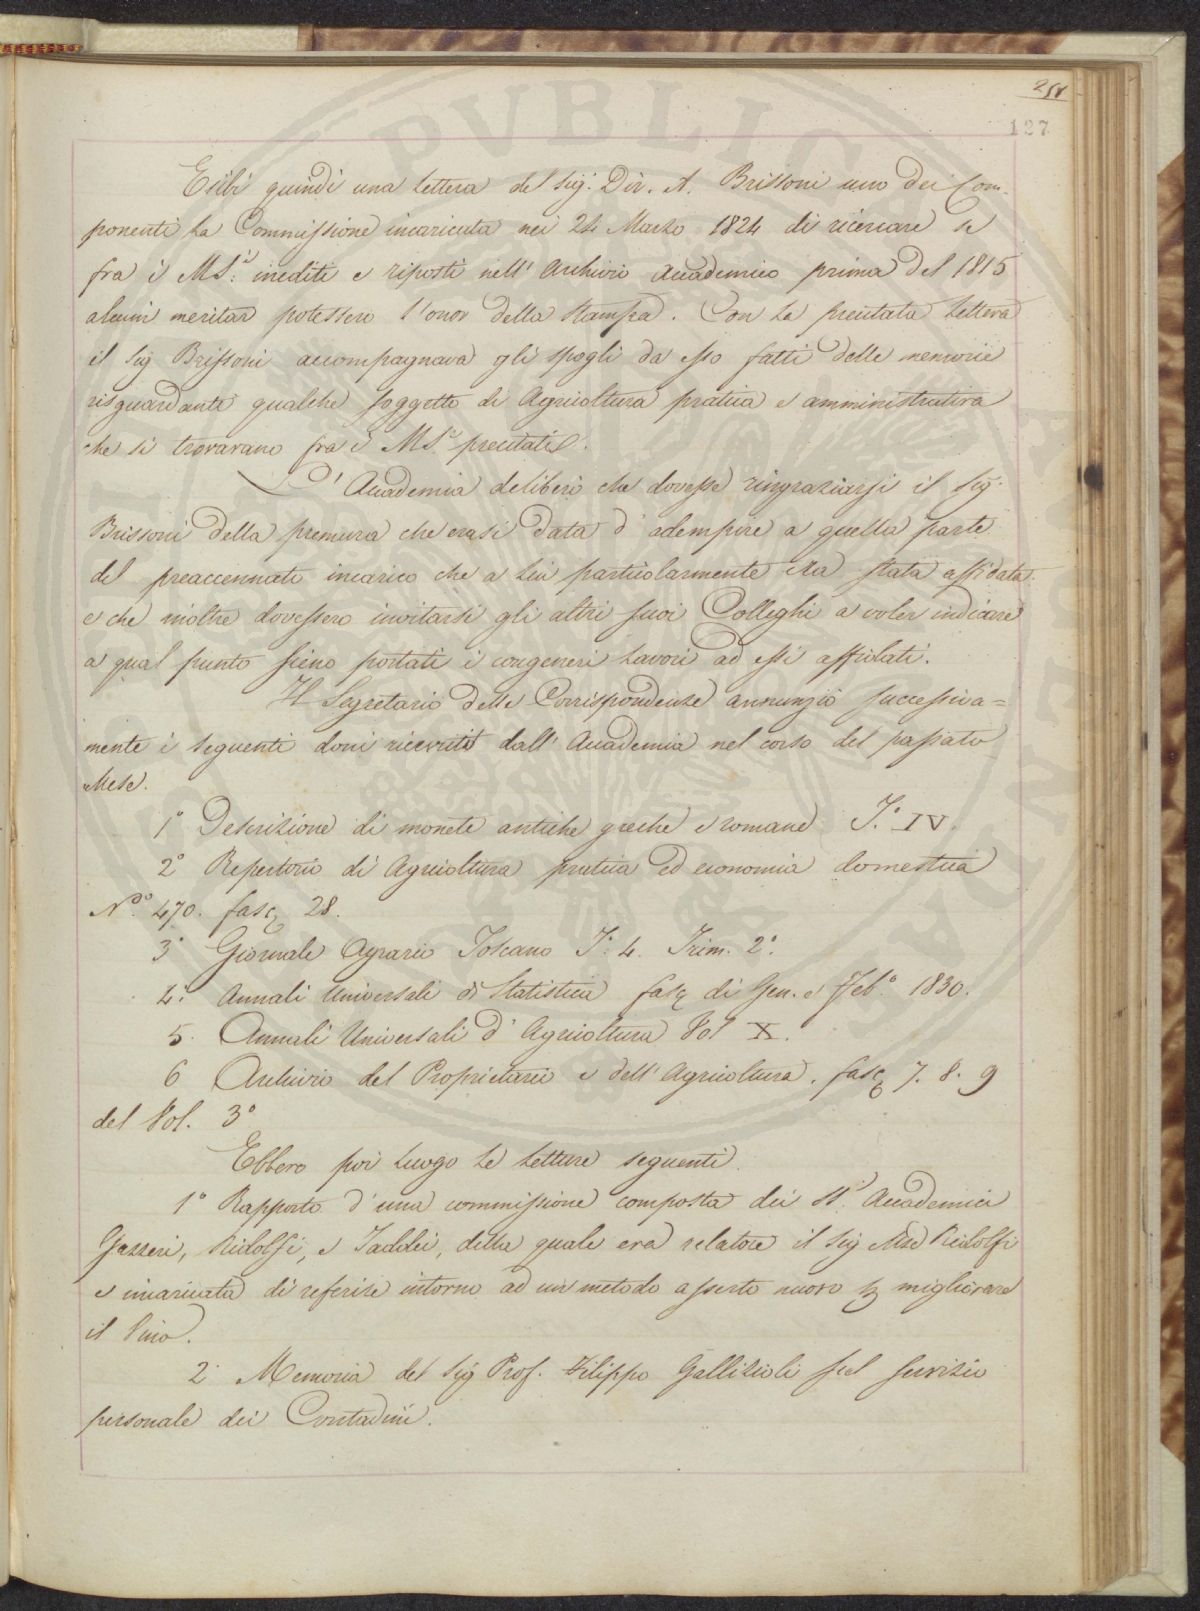 127
Esibì quindi una lettera del Sig.r Dir. A. Brissoni uno dei Com-
ponenti la Commissione incaricata nei 24 Marzo 1824 di ricercare se
fra i MS.ti inediti e riposti nell' Archivio Accademico prima del 1815
alcuni meritar potessero l'onor della Stampa. Con la precitata Lettera
il Sig Brissoni accompagnava gli spogli da esso fatti delle memorie
risguardanti qualche soggetto di Agricoltura pratica e amministrativa
che si trovavano fra i MS.ti precitati.
L' Accademia deliberò che dovesse ringraziarsi il Sig.r
Brissoni della premura che erasi data d' adempire a quella parte
del preaccennato incarico che a lui particolarmente era stata affidata
e che inoltre dovessero invitarsi gli altri suoi Colleghi a voler indicare
a qual punto sieno portati i congeneri lavori ad essi affidati.
Il Segretario delle Corrispondenze annunziò successiva=
mente i seguenti doni ricevuti dall' Accademia nel corso del passato
Mese.
1° Descrizione di monete antiche greche e romane T.° IV.
2° Repertorio di Agricoltura pratica ed economia domestica
N.° 470. fasc 28.
3° Giornale Agrario Toscano T.° 4. Trim. 2°.
4. Annali Universali di Statistica fasc di Gen. e Feb.° 1830.
5. Annali Universali d' Agricoltura Vol X.
6 Archivio del Proprietario e dell' Agricoltura. fasc 7. 8. 9
del Vol. 3°
Ebbero poi luogo le letture seguenti
1° Rapporto d' una commissione composta dei SS.ri Accademici
Gazzeri, Ridolfi, e Taddei, della quale era relatore il Sig Mse Ridolfi
e incaricata di referire intorno ad un metodo asserto nuovo p migliorare
il Vino.
2. Memoria del Sig Prof. Filippo Gallizioli sul servizio
personale dei Contadini.